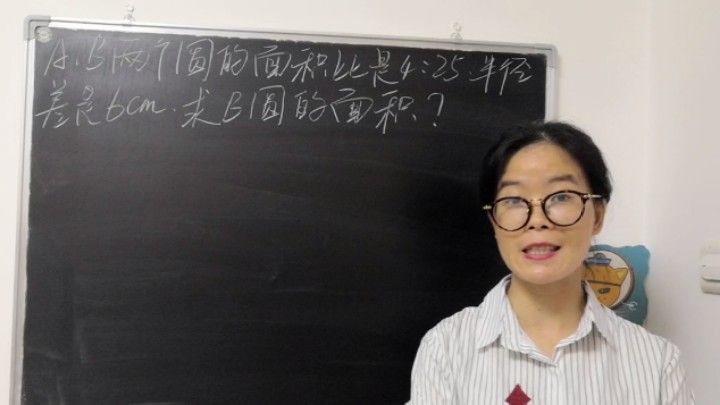 A、B两个圆的面积比是4:25.半径
差是6cm.求B圆的面积?